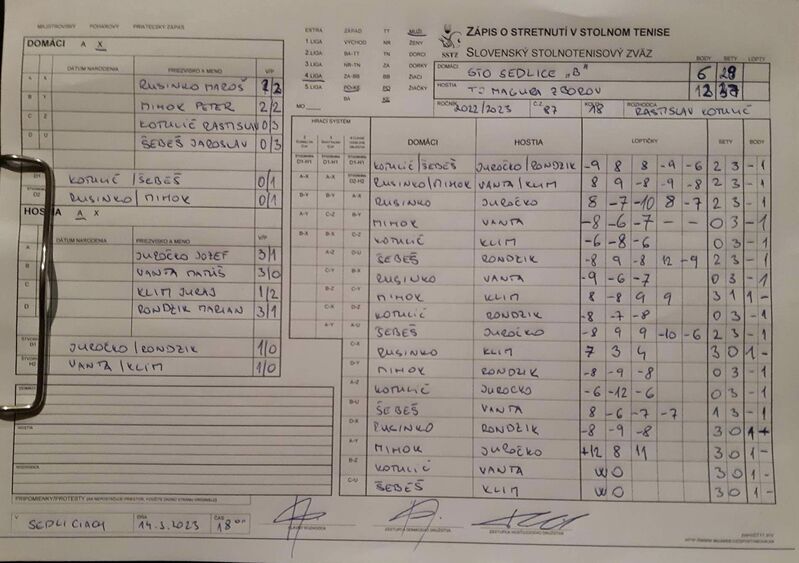 MAJSTROVSKÝ POHÁROVÝ PRIATEĽSKÝ ZÁPAS
DOMÁCI A X
DÁTUM NARODENIA PRIEZVISKO A MENO V/P
A X RUSINKO MAROŠ 2/2
B Y MIHOK PETER 2/2
C Z KOTULIČ RASTISLAV 0/3
D U ŠEBEŠ JAROSLAV 0/3
D1 KOTULIČ / ŠEBEŠ 0/1
D2 RUSINKO / MIHOK 0/1
HOSTIA A X
DÁTUM NARODENIA PRIEZVISKO A MENO V/P
A JUROČKO JOZEF 3/1
B VANTA MATÚŠ 3/0
C KLIM JURAJ 1/2
D RONDZIK MARIAN 3/1
JUROČKO / RONDZIK 1/0
H2 VANTA / KLIM 1/0
DOMÁCI
HOSTIA
ROZHODCA
PRIPOMIENKY/PROTESTY
V SEDLICIACH DŇA 14.3.2023 ČAS 18
EXTRA ZÁPAD TT MUŽI
1.LIGA VÝCHOD NR ŽENY
2.LIGA BA-TT TN DORCI
3.LIGA NR-TN ZA DORKY
4.LIGA ZA-BB BB ŽIACI
5.LIGA PO-KE PO ŽIAČKY
BA KE
MO
SSTZ
ZÁPIS O STRETNUTÍ V STOLNOM TENISE
SLOVENSKÝ STOLNOTENISOVÝ ZVÄZ
BODY SETY LOPTY
DOMÁCI STO SEDLICE „B" 6 28
HOSTIA TJ MAGURA ZBOROV 12 37
ROČNÍK 2022/2023 Č.Z. 87 KOLO 18 ROZHODCA RASTISLAV KOTULIČ
HRACÍ SYSTÉM DOMÁCI HOSTIA LOPTIČKY SETY BODY
KOTULIČ/ŠEBEŠ JUROČKO/RONDZIK -9 8 8 -9 -6 2 3 - 1
RUSINKO/MIHOK VANTA/KLIM 8 9 -8 -9 -8 2 3 - 1
RUSINKO JUROČKO 8 -7 -10 8 -7 2 3 - 1
MIHOK VANTA -8 -6 -7 — — 0 3 - 1
KOTULIČ KLIM -6 -8 -6 0 3 - 1
ŠEBEŠ RONDZIK -8 9 -8 12 -9 2 3 - 1
RUSINKO VANTA -9 -6 -7 0 3 - 1
MIHOK KLIM 8 -8 9 9 3 1 1 -
KOTULIČ RONDZIK -8 -7 -8 0 3 - 1
ŠEBEŠ JUROČKO -8 9 9 -10 -6 2 3 - 1
RUSINKO KLIM 7 3 4 3 0 1 -
MIHOK RONDZIK -8 -9 -8 0 3 - 1
KOTULIČ JUROČKO -6 -12 -6 0 3 - 1
ŠEBEŠ VANTA 8 -6 -7 -7 1 3 - 1
RUSINKO RONDZIK -8 -9 -8 3 0
MIHOK JUROČKO +12 8 11 3 0 1 -
KOTULIČ VANTA WO 3 0 1 -
ŠEBEŠ KLIM WO 3 0 1 -